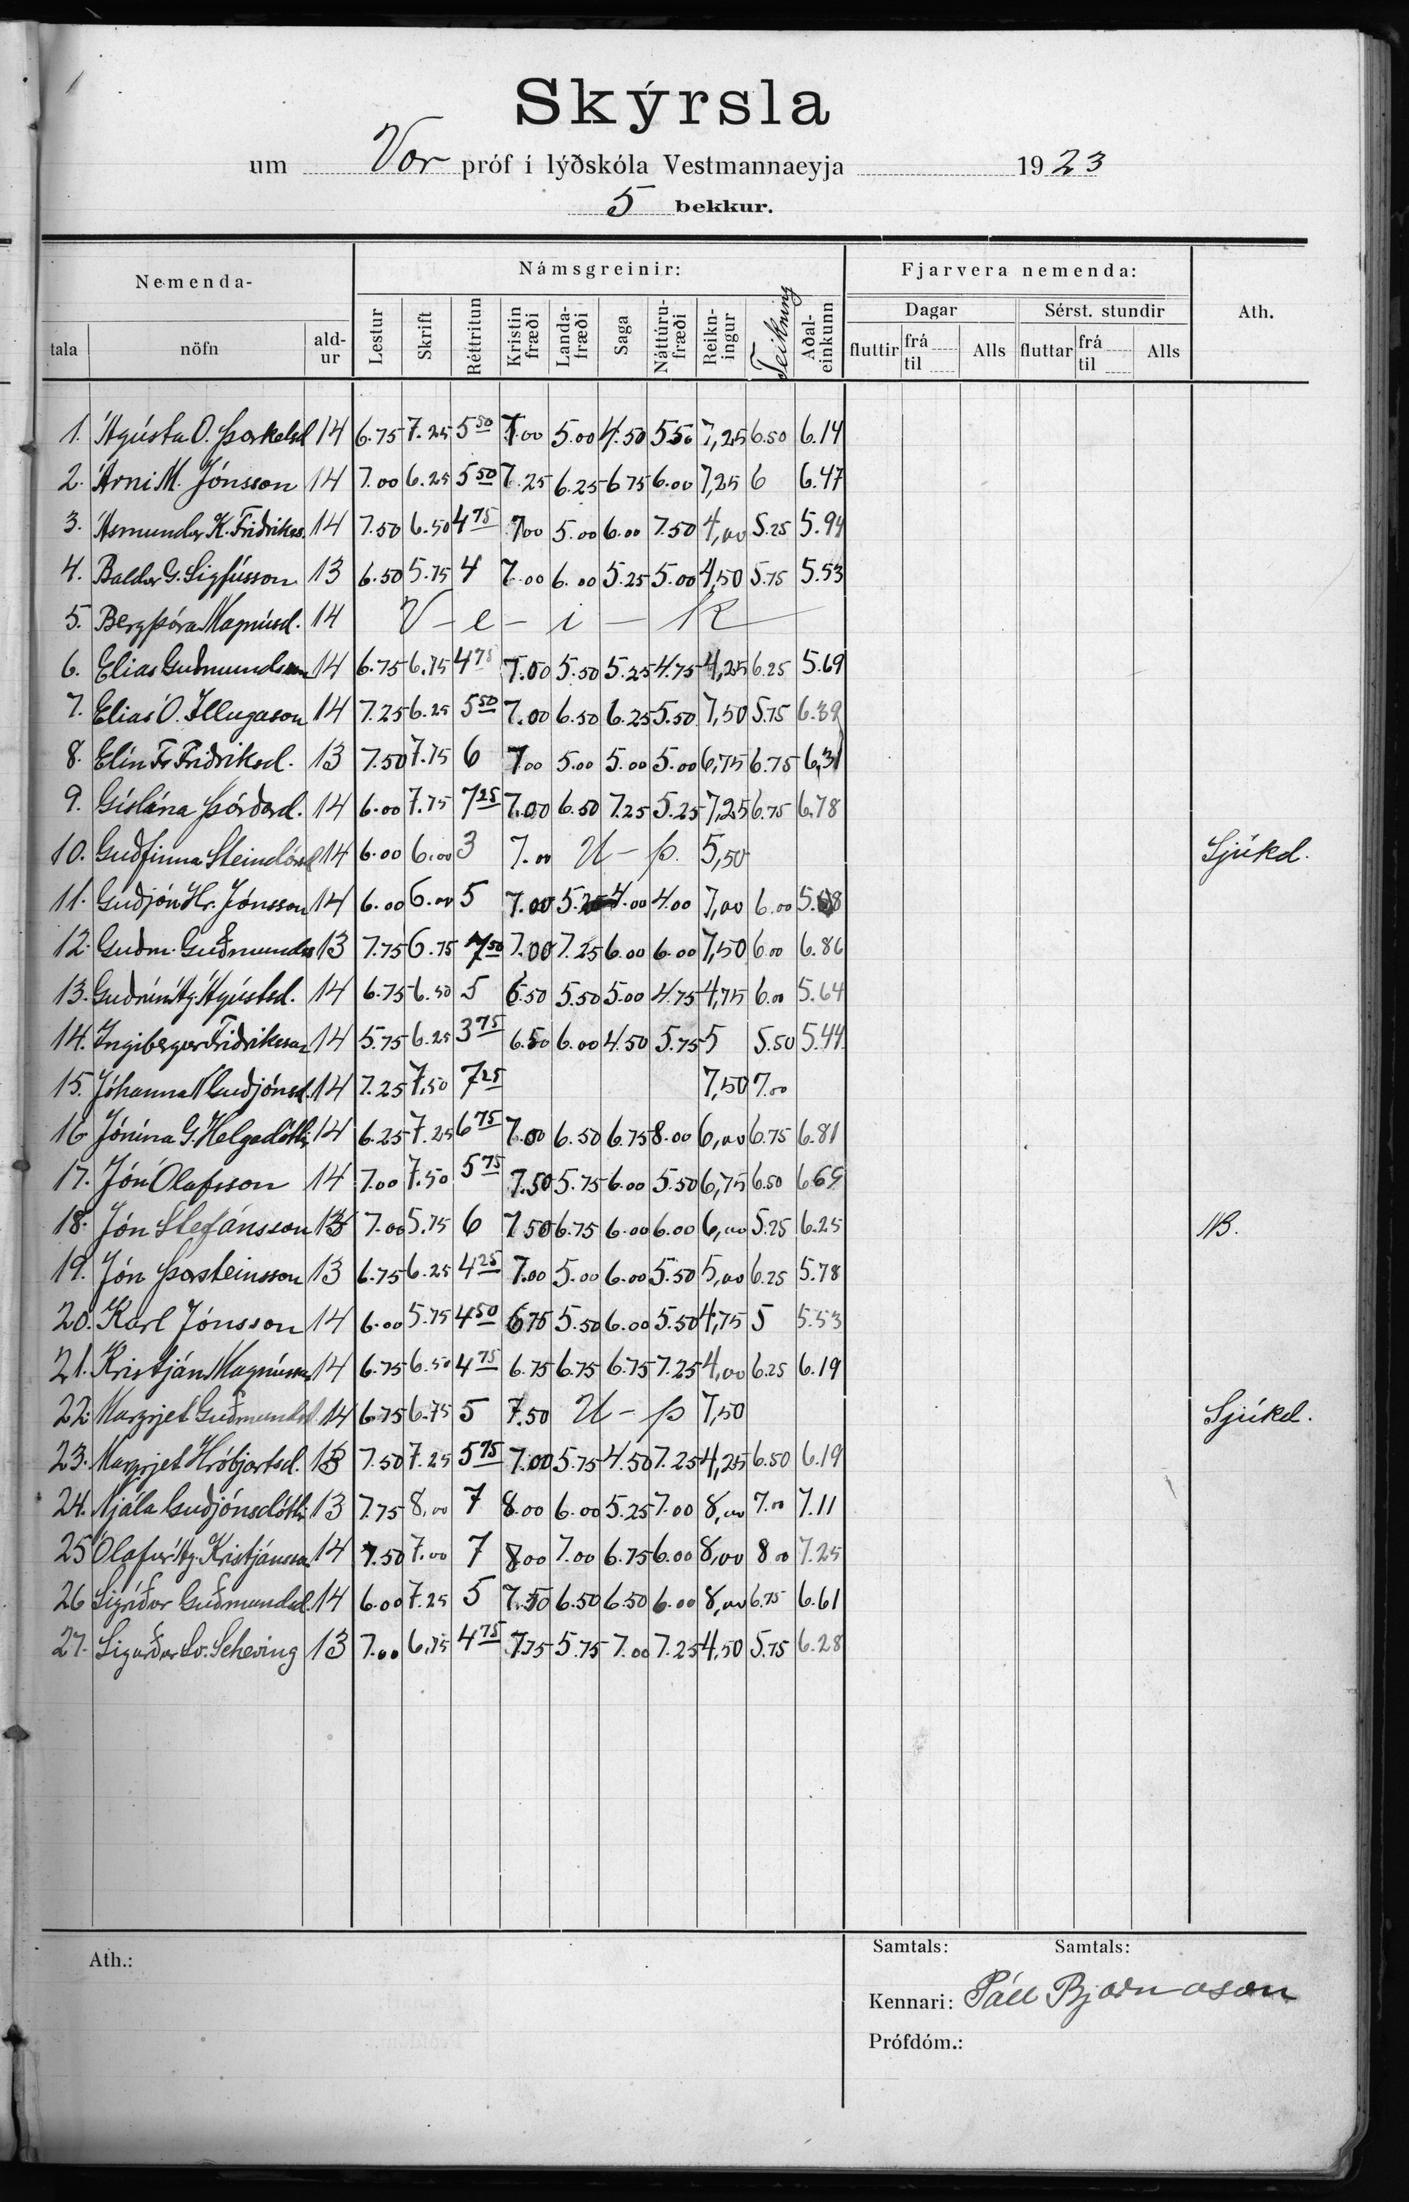 Skýrsla
um Vor próf í lýðskóla Vestmannaeyja 1923
5 bekkur.
Nemenda- Námsgreinir: Fjarvera nemenda: Ath.
tala nöfn ald-ur Lestur Skrift Réttritun Kristin fræði Landa-fræði Saga Náttúru-fræði Reikn-ingur Teikning Aðal-einkunn Dagar Sérst. stundir
fluttir frá til Alls fluttar frá til Alls
1. Ágústa O. Þorkelsd 14 6.75 7.25 5 50 7.00 5.00 4.50 5.50 7,25 6.50 6.14
2. Árni M. Jónsson 14 7.00 6.25 5 50 7.25 6.25 6 75 6.00 7,25 6 6.47
3. Ásmundur K. Friðrikss. 14 7.50 6.50 4 75 7.00 5.00 6.00 7.50 4,00 5.25 5.94
4. Baldur G. Sigfússon 13 6.50 5.75 4 7.00 6.00 5.25 5.00 4,50 5.75 5.53
5. Bergþóra Magnúsd. 14 V - e - i - k
6. Elias Guðmundsson 14 6.75 6.75 4 75 7.00 5.50 5.25 4.75 4,25 6.25 5.69
7. Elias Ó. Illugason 14 7.25 6.25 5 50 7.00 6.50 6.25 5.50 7,50 5.75 6.39
8. Elín Fr Friðriksd. 13 7.50 7.75 6 7.00 5.00 5.00 5.00 6,75 6.75 6,31
9. Gíslína Þórðard. 14 6.00 7.75 7 25 7.00 6.50 7.25 5.25 7,25 6.75 6.78
10. Guðfinna Steindórsd 14 6.00 6.00 3 7.00 U - þ. 5,50 Sjúkd.
11. Guðjón Hr. Jónsson 14 6.00 6.00 5 7.00 5.25 4.00 4.00 7,00 6.00
12. Guðm. Guðmunds 13 7.75 6.75 7 50 7.00 7.25 6.00 6.00 7,50 6.00 6.86
13. Guðrún Ág. Ágústsd. 14 6.75 6.50 5 6.50 5.50 5.00 4.75 4,75 6.00 5.64
14. Ingibergur Friðriksson 14 5.75 6.25 3 75 6.50 6.00 4.50 5.75 5 5.50 5.44
15. Jóhanna Guðjónsd. 14 7.25 7.50 7 25 7,50 7.00
16 Jónína G. Helgadóttir 14 6.25 7.25 6 75 7.00 6.50 6.75 8.00 6,00 6.75 6.81
17. Jón Ólafsson 14 7.00 7.50 5 75 7.50 5.75 6.00 5.50 6,75 6.50 6 69
18. Jón Stefánsson 13 7.00 5.75 6 7 50 6.75 6.00 6.00 6,00 5.25 6.25 NB.
19. Jón Þorsteinsson 13 6.75 6.25 4 25 7.00 5.00 6.00 5.50 5,00 6.25 5.78
20. Karl Jónsson 14 6.00 5.75 4 50 6 75 5.50 6.00 5.50 4,75 5 5.53
21. Kristján Magnússon 14 6.75 6.50 4 75 6.75 6.75 6.75 7.25 4,00 6.25 6.19
22. Margrjet Guðmundsd 14 6.75 6.75 5 7.50 U - þ 7,50 Sjúkd.
23. Margrjet Hróbjartsd. 13 7.50 7.25 5 75 7.00 5.75 4.50 7.25 4,25 6.50 6.19
24. Njála Guðjónsdóttir 13 7.75 8,00 7 8.00 6.00 5.25 7.00 8,00 7.00 7.11
25 Ólafur Ág. Kristjánsson 14 7.50 7.00 7 8.00 7.00 6.75 6.00 8,00 8 00 7.25
26 Sigríður Guðmundsd. 14 6.00 7.25 5 7.50 6.50 6.50 6.00 8,00 6.75 6.61
27. Sigurður Sv. Scheving 13 7.00 6.75 4 75 7.75 5.75 7.00 7.25 4,50 5.75 6.28
Ath.: Samtals: Samtals:
Kennari: Páll Bjarnason
Prófdóm.: